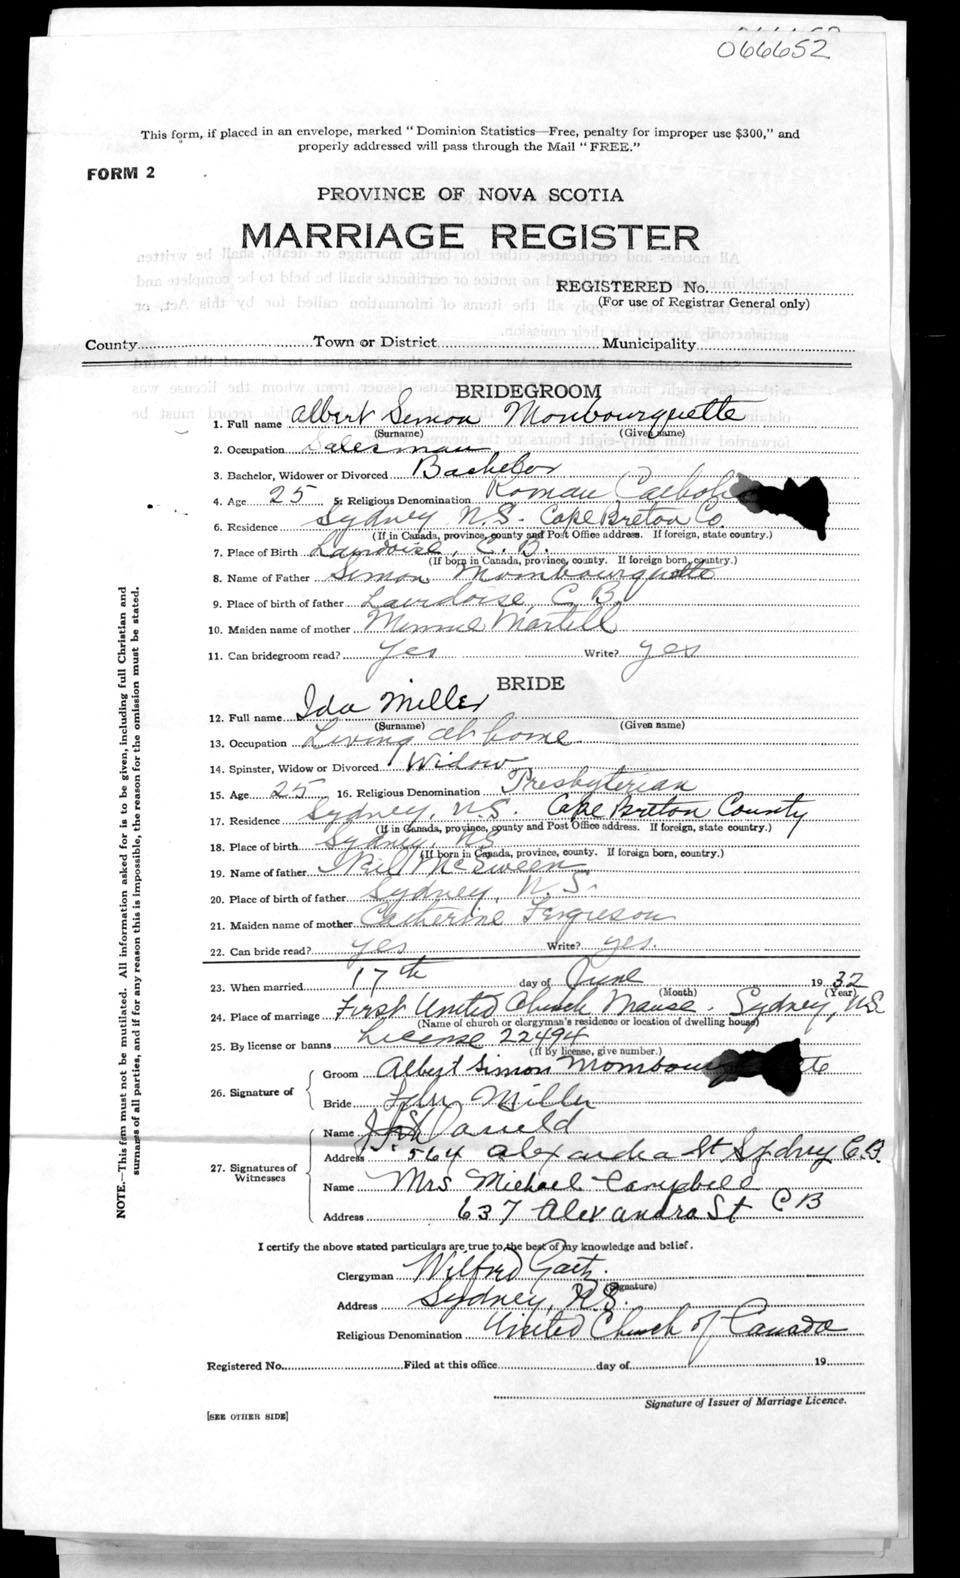 066652
This form, if placed in an envelope, marked "Dominion Statistics—Free, penalty for improper use $300," and
properly addressed will pass through the Mail "FREE."
FORM 2
PROVINCE OF NOVA SCOTIA
MARRIAGE REGISTER
REGISTERED No.
(For use of Registrar General only)
County Town or District Municipality
BRIDEGROOM
1. Full name Albert Simon Mombourquette
(Surname) (Given name)
2. Occupation Salesman
3. Bachelor, Widower or Divorced Bachelor
4. Age 25 5. Religious Denomination Roman Catholic
6. Residence Sydney N.S. Cape Breton Co.
(If in Canada, province, county and Post Office address. If foreign, state country.)
7. Place of Birth C. B.
(If born in Canada, province, county. If foreign born, country.)
8. Name of Father Simon Mombourquette
9. Place of birth of father C. B.
10. Maiden name of mother Minnie Martell
11. Can bridegroom read? Yes Write? yes
BRIDE
12. Full name Ida Miller
(Surname) (Given name)
13. Occupation Living at home
14. Spinster, Widow or Divorced Widow
15. Age 25 16. Religious Denomination Presbyterian
17. Residence Sydney, N.S. Cape Breton County
(If in Canada, province, county and Post Office address. If foreign, state country.)
18. Place of birth Sydney, NS
(If born in Canada, province, county. If foreign born, country.)
19. Name of father Neil McEween
20. Place of birth of father Sydney, N.S.
21. Maiden name of mother Catherine Ferguson
22. Can bride read? yes Write? yes.
23. When married 17th day of June 1932
(Month) (Year)
24. Place of marriage First United Church Manse. Sydney, N.S.
(Name of church or clergyman's residence or location of dwelling house)
25. By license or banns License 22494
(If by license, give number.)
26. Signature of
Groom Albert Simon Mombourquette
Bride Miller
27. Signatures of Witnesses
Name
Address 564 Alexandra St Sydney C.B.
Name Mrs Michael Campbell
Address 637 Alexandra St C B
I certify the above stated particulars are true to the best of my knowledge and belief.
Clergyman Wilfred Gaetz.
(Signature)
Address Sydney, N.S.
Religious Denomination United Church of Canada
Registered No. Filed at this office day of 19
Signature of Issuer of Marriage Licence.
[SEE OTHER SIDE]
NOTE.—This form must not be mutilated. All information asked for is to be given, including full Christian and
surnames of all parties, and if for any reason this is impossible, the reason for the omission must be stated.